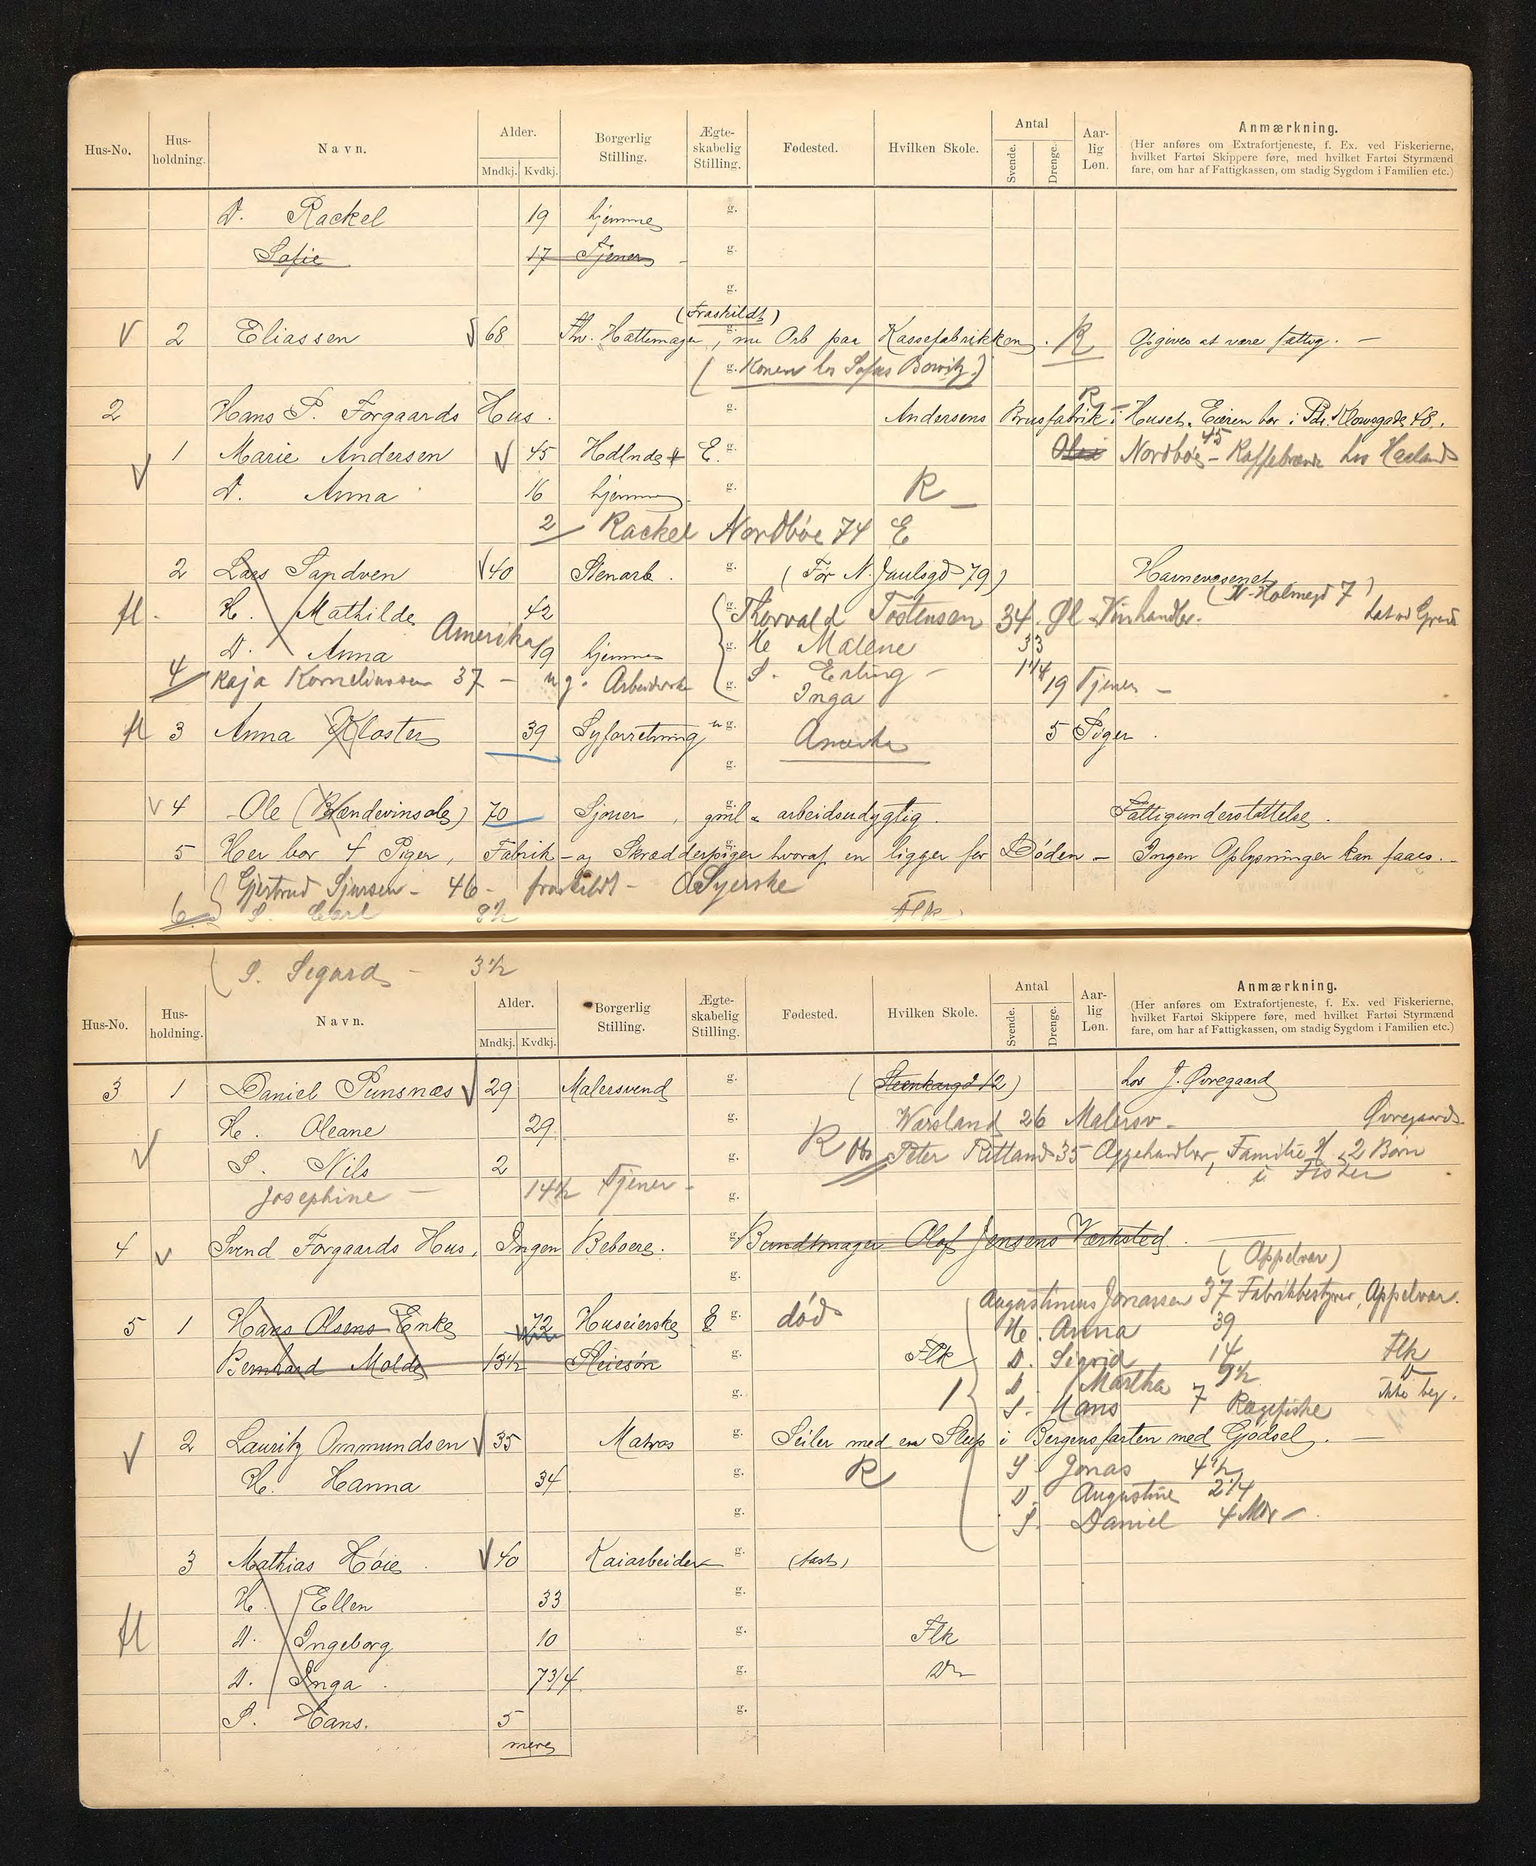 Hus-No. Hus-holdning. Navn. Alder. Mndkj. Kvdkj. Borgerlig Stilling. Ægte-skabelig Stilling. Fødested. Hvilken Skole. Antal Svende. Drenge. Aar-lig Løn. Anmærkning.
(Her anføres om Extrafortjeneste, f. Ex. ved Fiskerierne, hvilket Fartøi Skippere føre, med hvilket Fartøi Styrmænd fare, om har af Fattigkassen, om stadig Sygdom i Familien etc.)
D. Rackel 19 hjemme g.
Sofie 17 Tjener g.
g.
(Fraskildt)
2 Eliassen 68 Fhv. Hattemager, nu Arb paa Kassefabrikken. R Opgives at være fattig. —
(Konen hos Sofus Bowitz.)
2 Hans P. Forgaards Hus. g. Andersens Brusfabrik i Huset. Eieren bor i Pdr. Klowsgade 48. R
1 Marie Andersen 45 Hdlnde E. g. Nordbøe 45 - Kaffebrænde hos Haaland
D. Anna 16 hjemme g. R
2 Rackel Nordbøe 74 E
2 Lars Sandven 40 Stenarb. g. (Før N. Jaulsgd 79) Havnevæsenet
fl. H. Mathilde 42 g. Thorvald Tostensen 34. Øl-Vinhandler. (N. Holmegd 7)
D. Anna Amerika 19 hjemme g. He Malene 33
4 Kaja Korneliussen 37 - ug. Arbeiderske g. S. Erling - 1 1/4
Inga 19 Tjener -
fl 3 Anna Kloster 39 Syforretning ug. Amerika 5 Piger.
g.
4 Ole (Brændevinsole) 70 Sjouer, gml. arbeidsudygtig. g. Fattigunderstøttelse.
5 Her bor 4 Piger, Fabrik- og Skrædderpiger hvoraf en ligger for Døden - Ingen Oplysninger kan faaes. -
6 Gjertrud Sjursen - 46 - fraskildt - Syerske
S. Carl 9½ Flk
S. Sigard - 3½
Hus-No. Hus-holdning. Navn. Alder. Mndkj. Kvdkj. Borgerlig Stilling. Ægte-skabelig Stilling. Fødested. Hvilken Skole. Antal Svende. Drenge. Aar-lig Løn. Anmærkning.
(Her anføres om Extrafortjeneste, f. Ex. ved Fiskerierne, hvilket Fartøi Skippere føre, med hvilket Fartøi Styrmænd fare, om har af Fattigkassen, om stadig Sygdom i Familien etc.)
3 1 Daniel Punsnæs 29 Malersvend g. (Steenkargd 12) hos J. Øvregaard
H. Oleane 29 g. Warsland 26 Malersv. Øvregaards
S. Nils 2 g. R Peter Retland 35 Æggehandler, Familie H 2 Børn i Fister
Josephine - 14½ Tjener - g.
4 Svend Forgaards Hus. Ingen Beboere. g. Bundtmager Olaf Jensens Værksted.
g. (Appelvar)
Augustinus Jonassen 37 Fabrikbestyrer, Appelvar.
5 1 Hans Olsens Enke 72 Huseierske E g. død He. Anna 39
Bernhard Molde 13½ Pleiesøn g. Flk D. Sigrid 14 Flk
g. 1 D. Martha 9½ D
S. Hans 7 Røgefiske ikke beg.
2 Lauritz Ommundsen 35 Matros g. Seiler med en Slup i Bergensfarten med Gjødsel. —
H. Hanna 34 g. R S. Jonas 4½
g. D. Augustine 2 1/4
S. Daniel 4 Mdr -
3 Mathias Høie 40 Kaiarbeider g. (fast)
H. Ellen 33 g.
fl D. Ingeborg 10 g. Flk
D. Inga 7 3/4 g. Do
S. Hans. 5 g.
mere